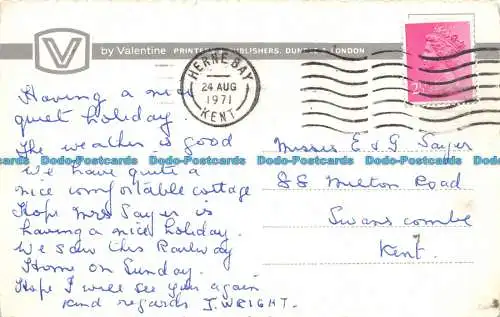 V
by Valentine PRINTERS & PUBLISHERS, DUNDEE & LONDON
HERNE BAY
24 AUG
1971
KENT
2½
Having a nice
quiet holiday.
The weather is good
We have quite a
nice comfortable cottage
Hope Mrs Sayer is
having a nice holiday.
We saw this Railway
Home on Sunday.
Hope I will see you again
Kind regards J. WRIGHT.
Misses E & G Sayer
88 Milton Road
Swanscombe
Kent.
Dodo-Postcards Dodo-Postcards Dodo-Postcards Dodo-Postcards